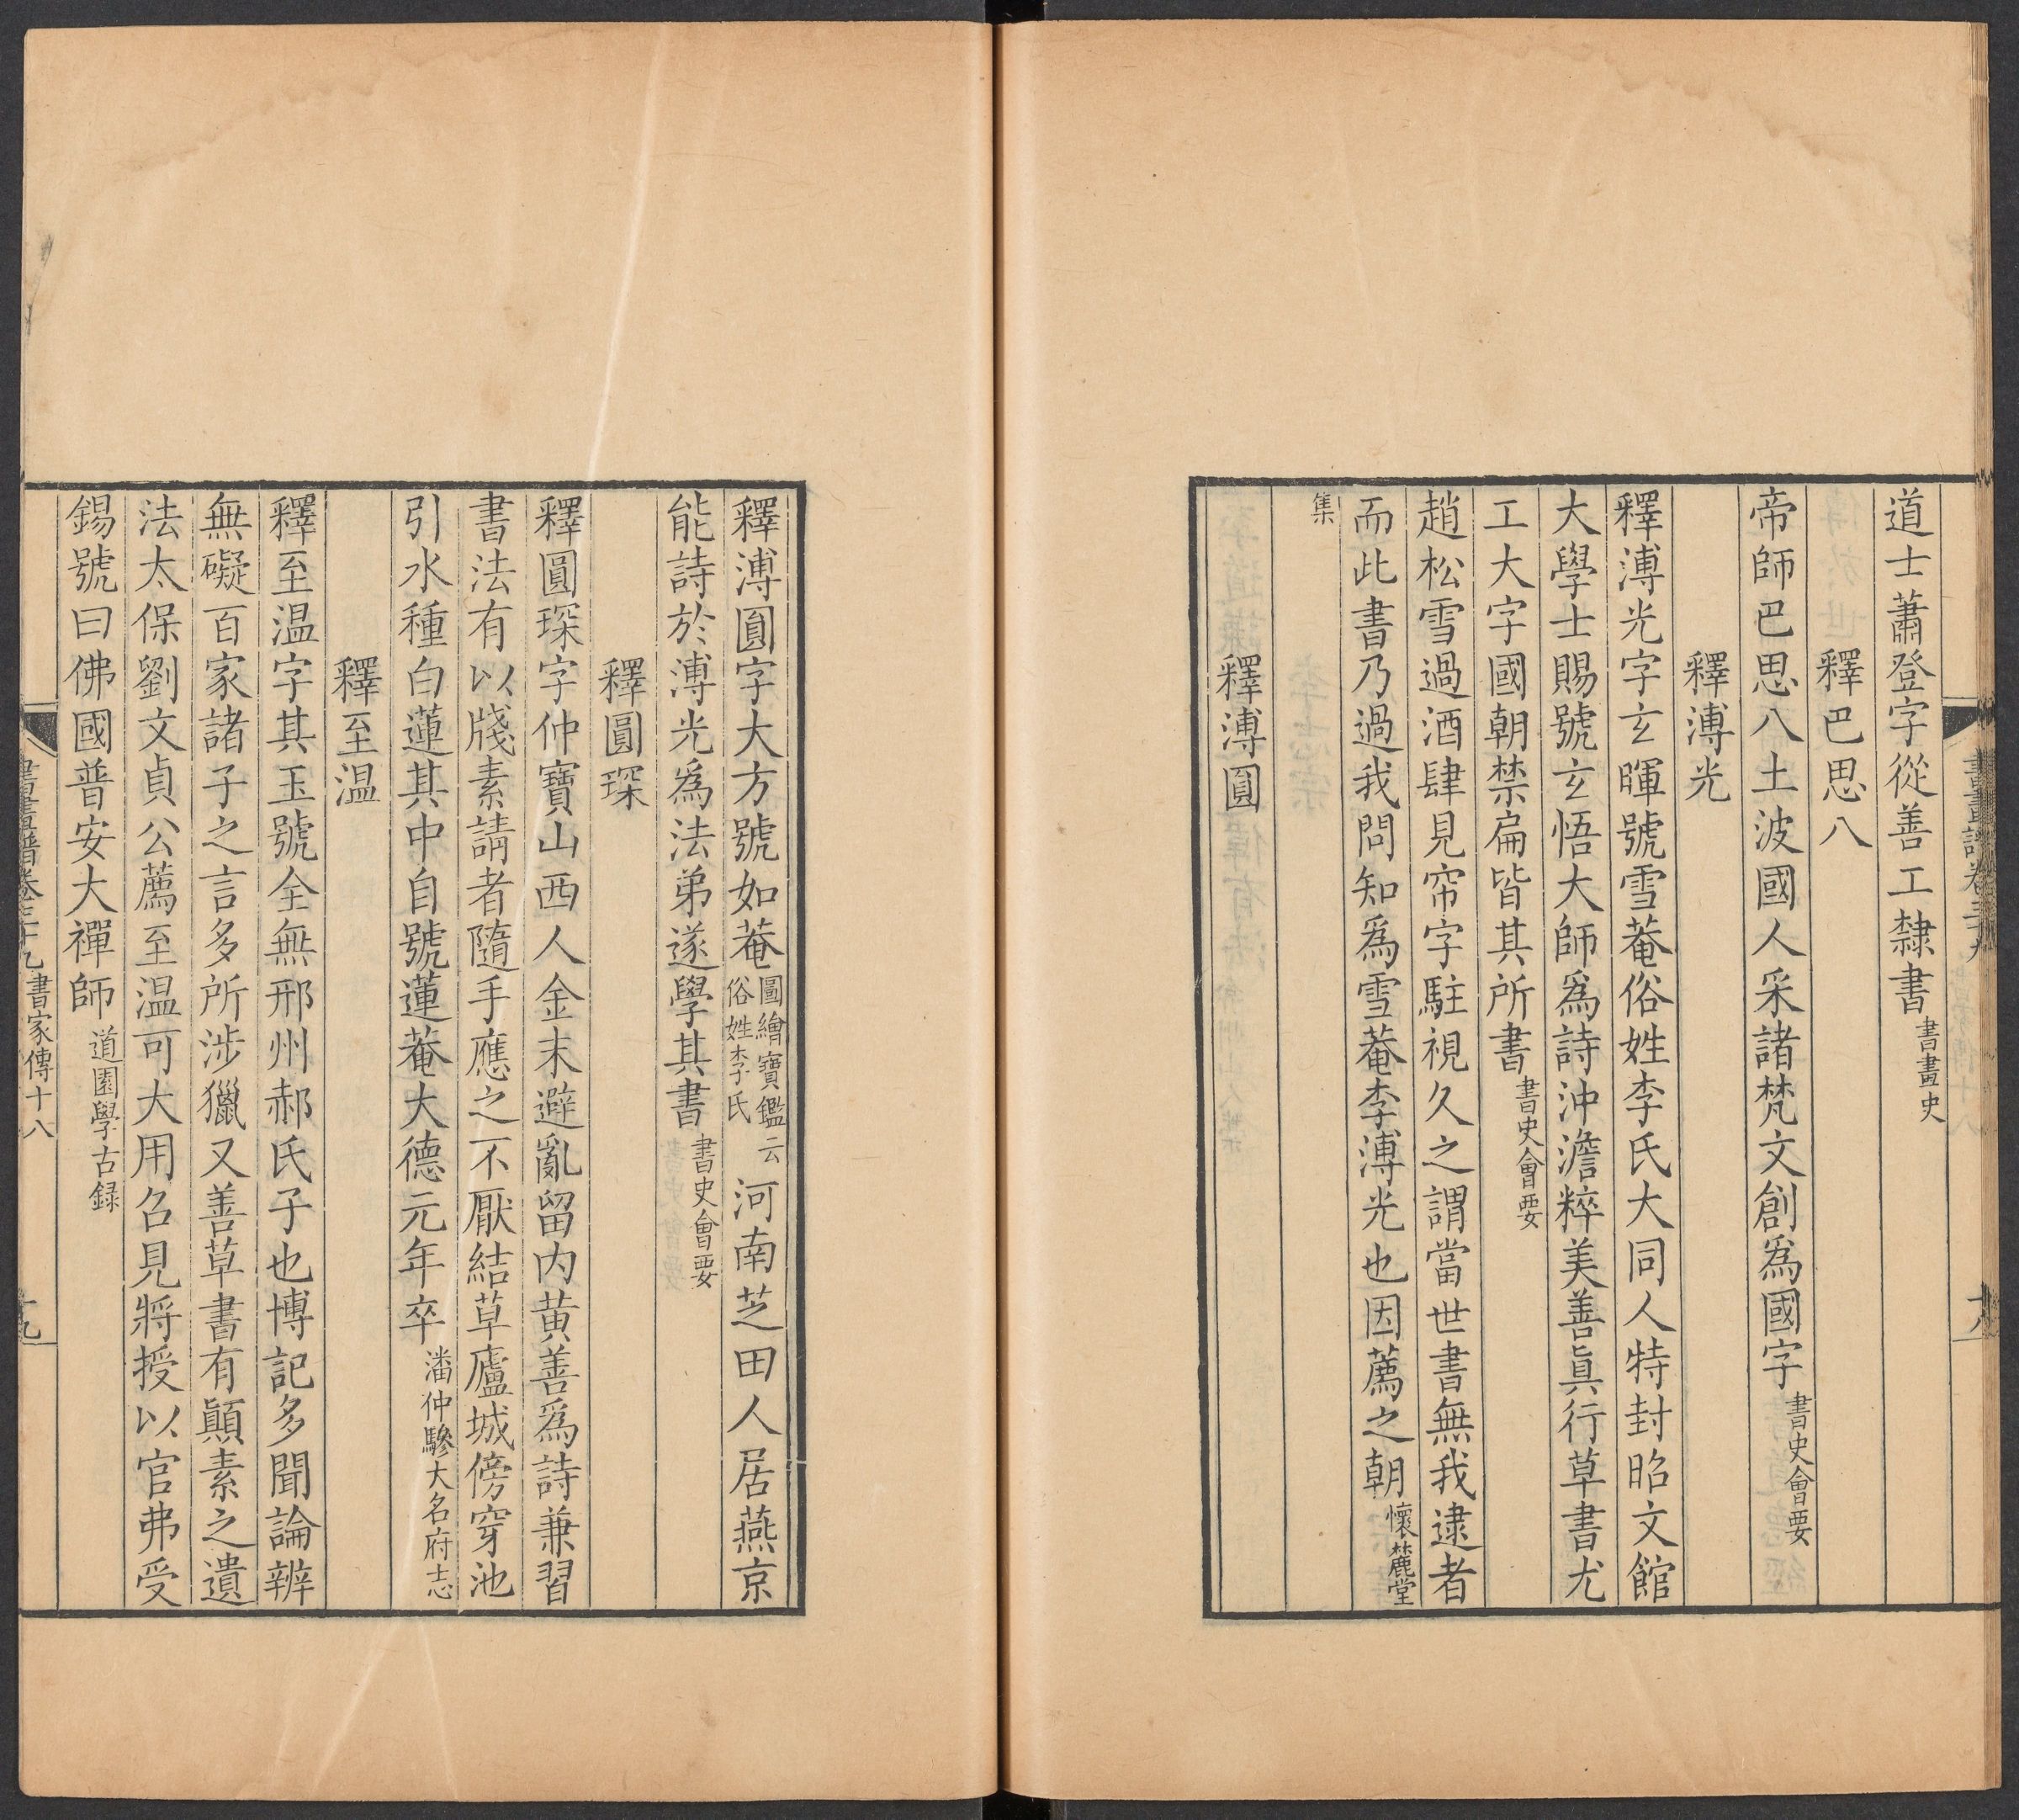 道士蕭登字從善工隸書書畫史
釋巴思八
帝師巴思八土波國人采諸梵文創爲國字書史會要
釋溥光
釋溥光字玄暉號雪菴俗姓李氏大同人特封昭文館
大學士賜號玄悟大師爲詩沖澹粹美善眞行草書尤
工大字國朝禁扁皆其所書書史會要
趙松雪過酒肆見帘字駐視久之謂當世書無我逮者
而此書乃過我問知爲雪菴李溥光也因薦之朝懷麓堂
集
釋溥圓
釋溥圓字大方號如菴圖繪寶鑑云俗姓李氏河南芝田人居燕京
能詩於溥光爲法弟遂學其書書史會要
釋圓琛
釋圓琛字仲寶山西人金末避亂留内黄善爲詩兼習
書法有以牋素請者隨手應之不厭結草廬城傍穿池
引水種白蓮其中自號蓮菴大德元年卒潘仲驂大名府志
釋至温
釋至温字其玉號全無邢州郝氏子也博記多聞論辨
無礙百家諸子之言多所涉獵又善草書有顚素之遺
法太保劉文貞公薦至温可大用召見將授以官弗受
錫號曰佛國普安大禪師道園學古録
書畫譜卷三十九書家傳十八
十九